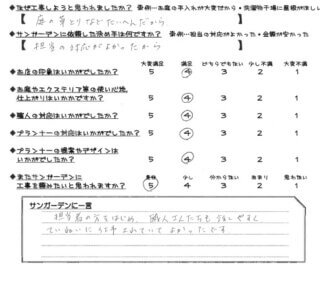 ◆なぜ工事しようと思われましたか？ 条例…お庭の手入れが大変だから・洗濯物干場に屋根がほし
【 庭の草とりなどたいへんだから 】
◆サンガーデンに依頼した決め手は何ですか？ 条例…担当の対応がよかった・金額が安かった
【 担当の対応がよかったから 】
大変満足 満足 どちらでもない 少し不満 大変不満
◆お店の印象はいかがでしたか？ 5 4 3 2 1
◆お庭やエクステリア等の使い心地、
仕上がりはいかがですか？ 5 4 3 2 1
◆職人の対応はいかがでしたか？ 5 4 3 2 1
◆プランナーの対応はいかがでしたか？ 5 4 3 2 1
◆プランナーの提案やデザインは
いかがでしたか？ 5 4 3 2 1
少し 分からない あまり 思わない
◆またサンガーデンに
工事を頼みたいと思われますか？ 5 4 3 2 1
サンガーデンに一言
担当者の方をはじめ、職人さんたちも話しやすく
ていねいに仕事されていてよかったです。